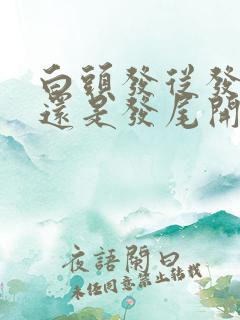 白頭發從發
還是發尾開
夜語闌曰
未任同意禁止转载